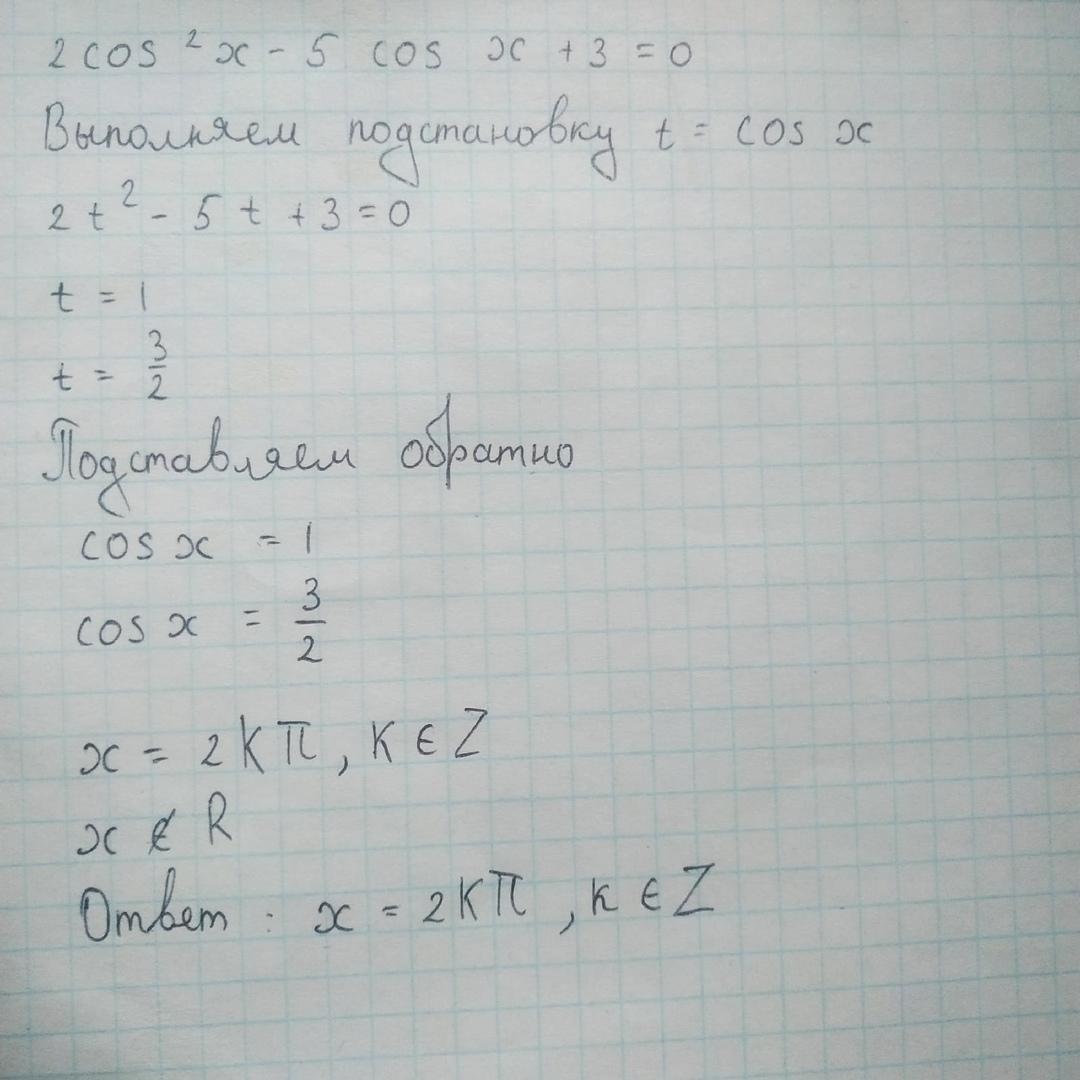 2 cos ² x - 5 cos x + 3 = 0
Выполняем подстановку t = cos x
2 t ² - 5 t + 3 = 0
t = 1
t = 3/2
Подставляем обратно
cos x = 1
cos x = 3/2
x = 2 K π , K ∈ Z
x ∉ R
Ответ : x = 2 K π , K ∈ Z